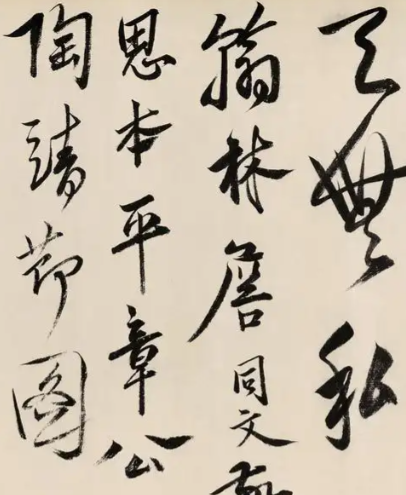 天無私
翰林詹同文
思本平章公
陶靖節圖